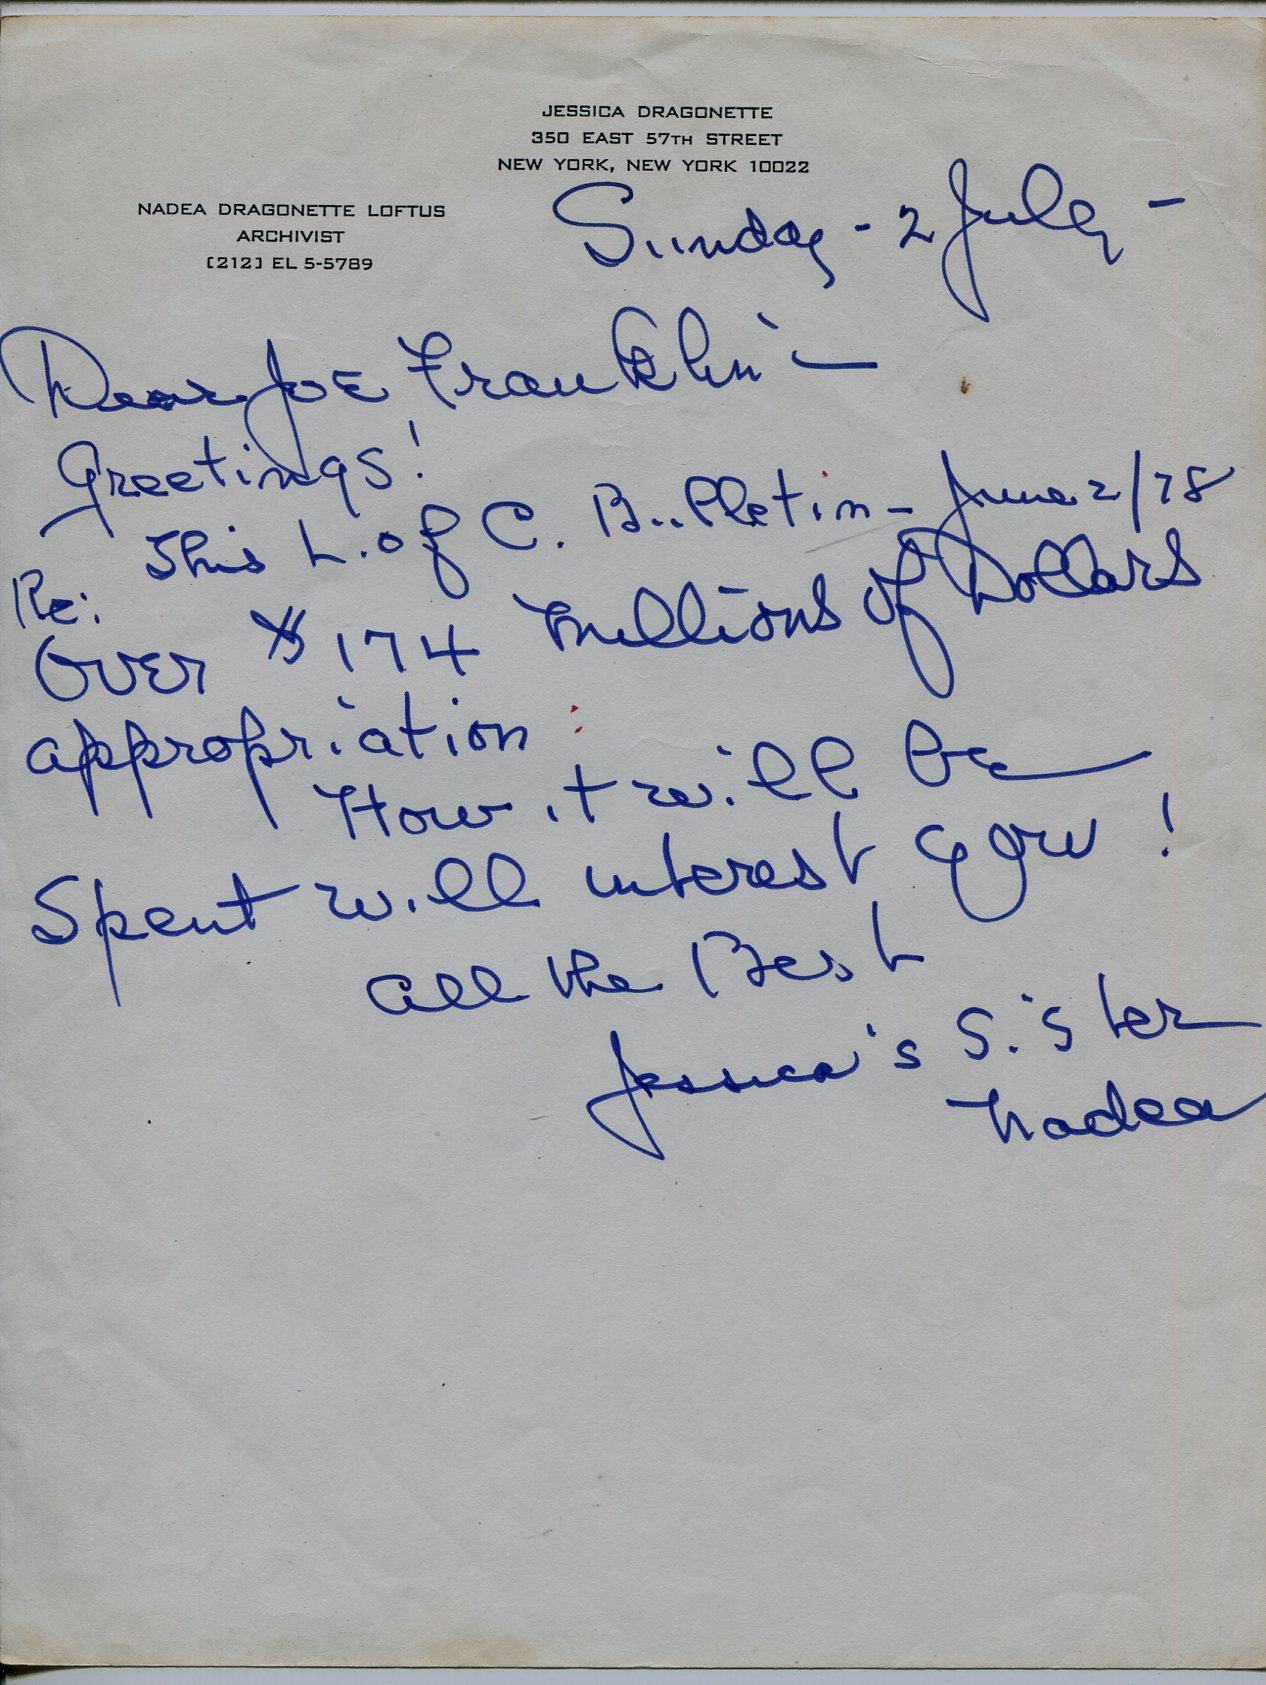 JESSICA DRAGONETTE
350 EAST 57TH STREET
NEW YORK, NEW YORK 10022
NADEA DRAGONETTE LOFTUS
ARCHIVIST
[212] EL 5-5789
Sunday - 2 July -
Dear Joe Franklin -
Greetings!
Re: This L. of C. Bulletin - June 2/78
Over $174 millions of Dollars
appropriation :
How it will be
Spent will interest you!
All the Best
Jessica's Sister
Nadea